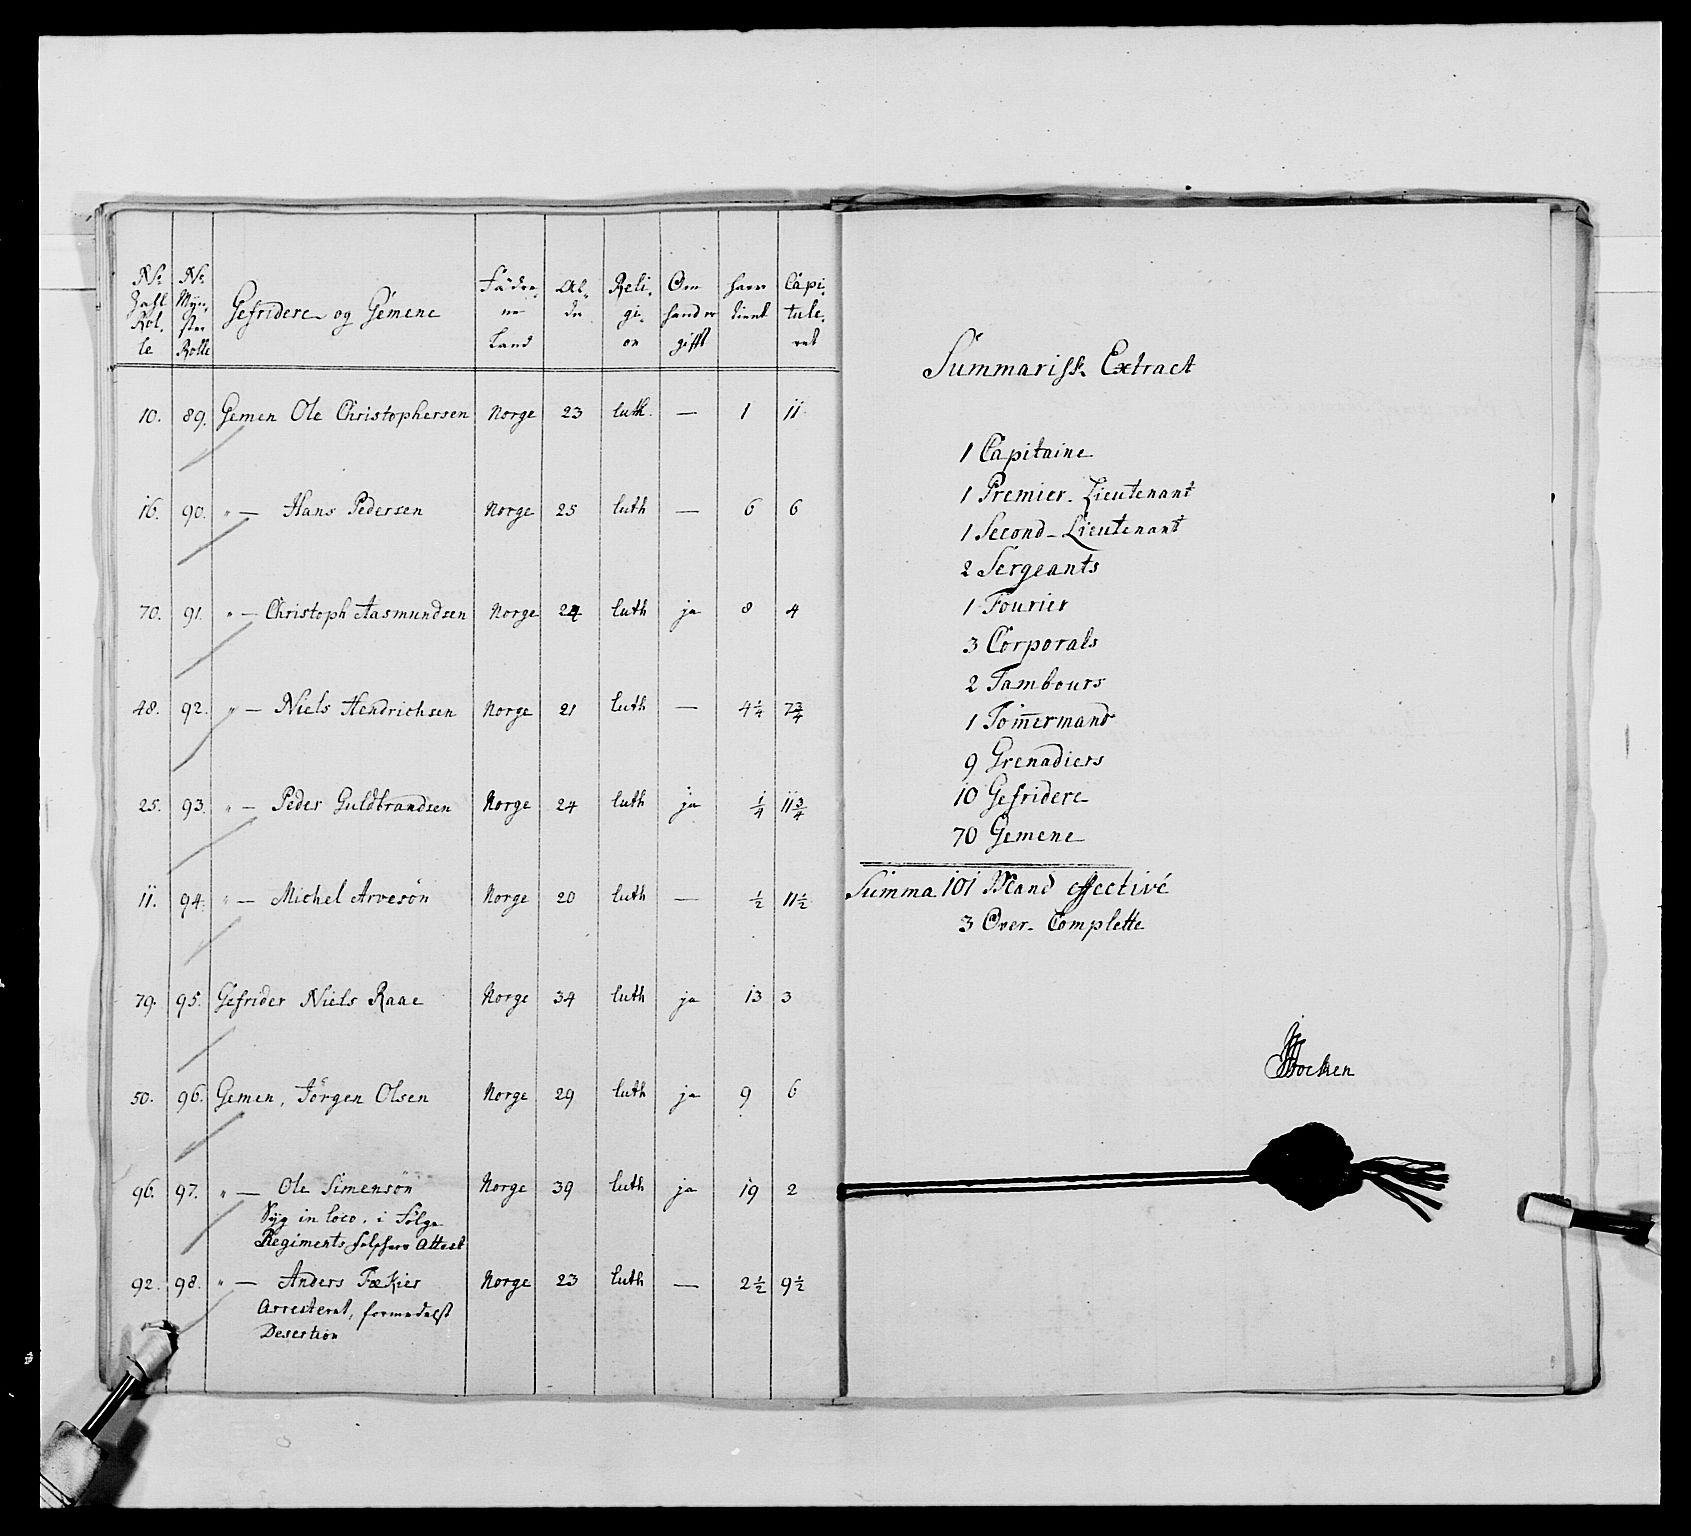 No Zahl Rol. le | No Mÿn, ster Rolle | Gefridere og Gemene | Fædre, ne Land | Al, der | Reli, gi, on | Om hand er gifft | haver tient | Capi, tule, ret
10. 89. Gemen Ole Christophersen Norge 23 luth. — 1 11
16. 90. " — Hans Pedersen Norge 25 luth — 6 6
70. 91. " — Christoph Aasmundsen Norge 24 luth ja 8 4
48. 92. " — Niels Hendrichsen Norge 21 luth — 4¼ 7¾
25. 93. " — Peder Guldbrandsen Norge 24 luth ja ¼ 11¾
11. 94. " — Michel Arvesön Norge 20 luth — ½ 11½
79. 95. Gefrider Niels Raae Norge 34 luth ja 13 3
50. 96. Gemen, Jörgen Olsen Norge 29 luth ja 9 6
96. 97. " — Ole Simensön Norge 39 luth ja 19 2
Syg in loco, i Fölge
Regiments Attest
92. 98. " — Anders Fækier Norge 23 luth — 2½ 9½
Arresteret, formedelst
Desertion
Summarisk Extract
1 Capitaine
1 Premier-Lieutenant
1 Second-Lieutenant
2 Sergeants
1 Fourier
3 Corporals
2 Tambours
1 Tom̅ermand
9 Grenadiers
10 Gefridere
70 Gemene
Summa 101 Mand effectivé
3 Over-Complette